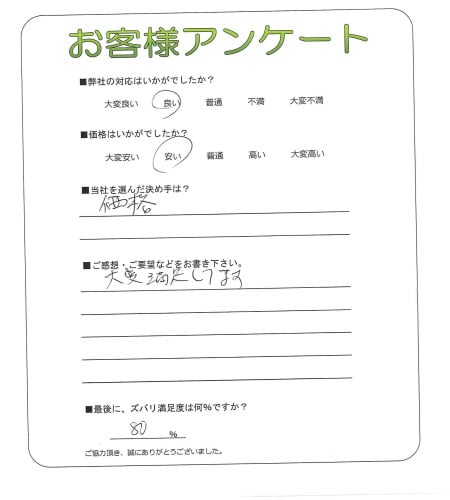 お客様アンケート
■弊社の対応はいかがでしたか？
大変良い 良い 普通 不満 大変不満
■価格はいかがでしたか？
大変安い 安い 普通 高い 大変高い
■当社を選んだ決め手は？
価格
■ご感想・ご要望などをお書き下さい。
大変満足してます
■最後に、ズバリ満足度は何％ですか？
80 ％
ご協力頂き、誠にありがとうございました。